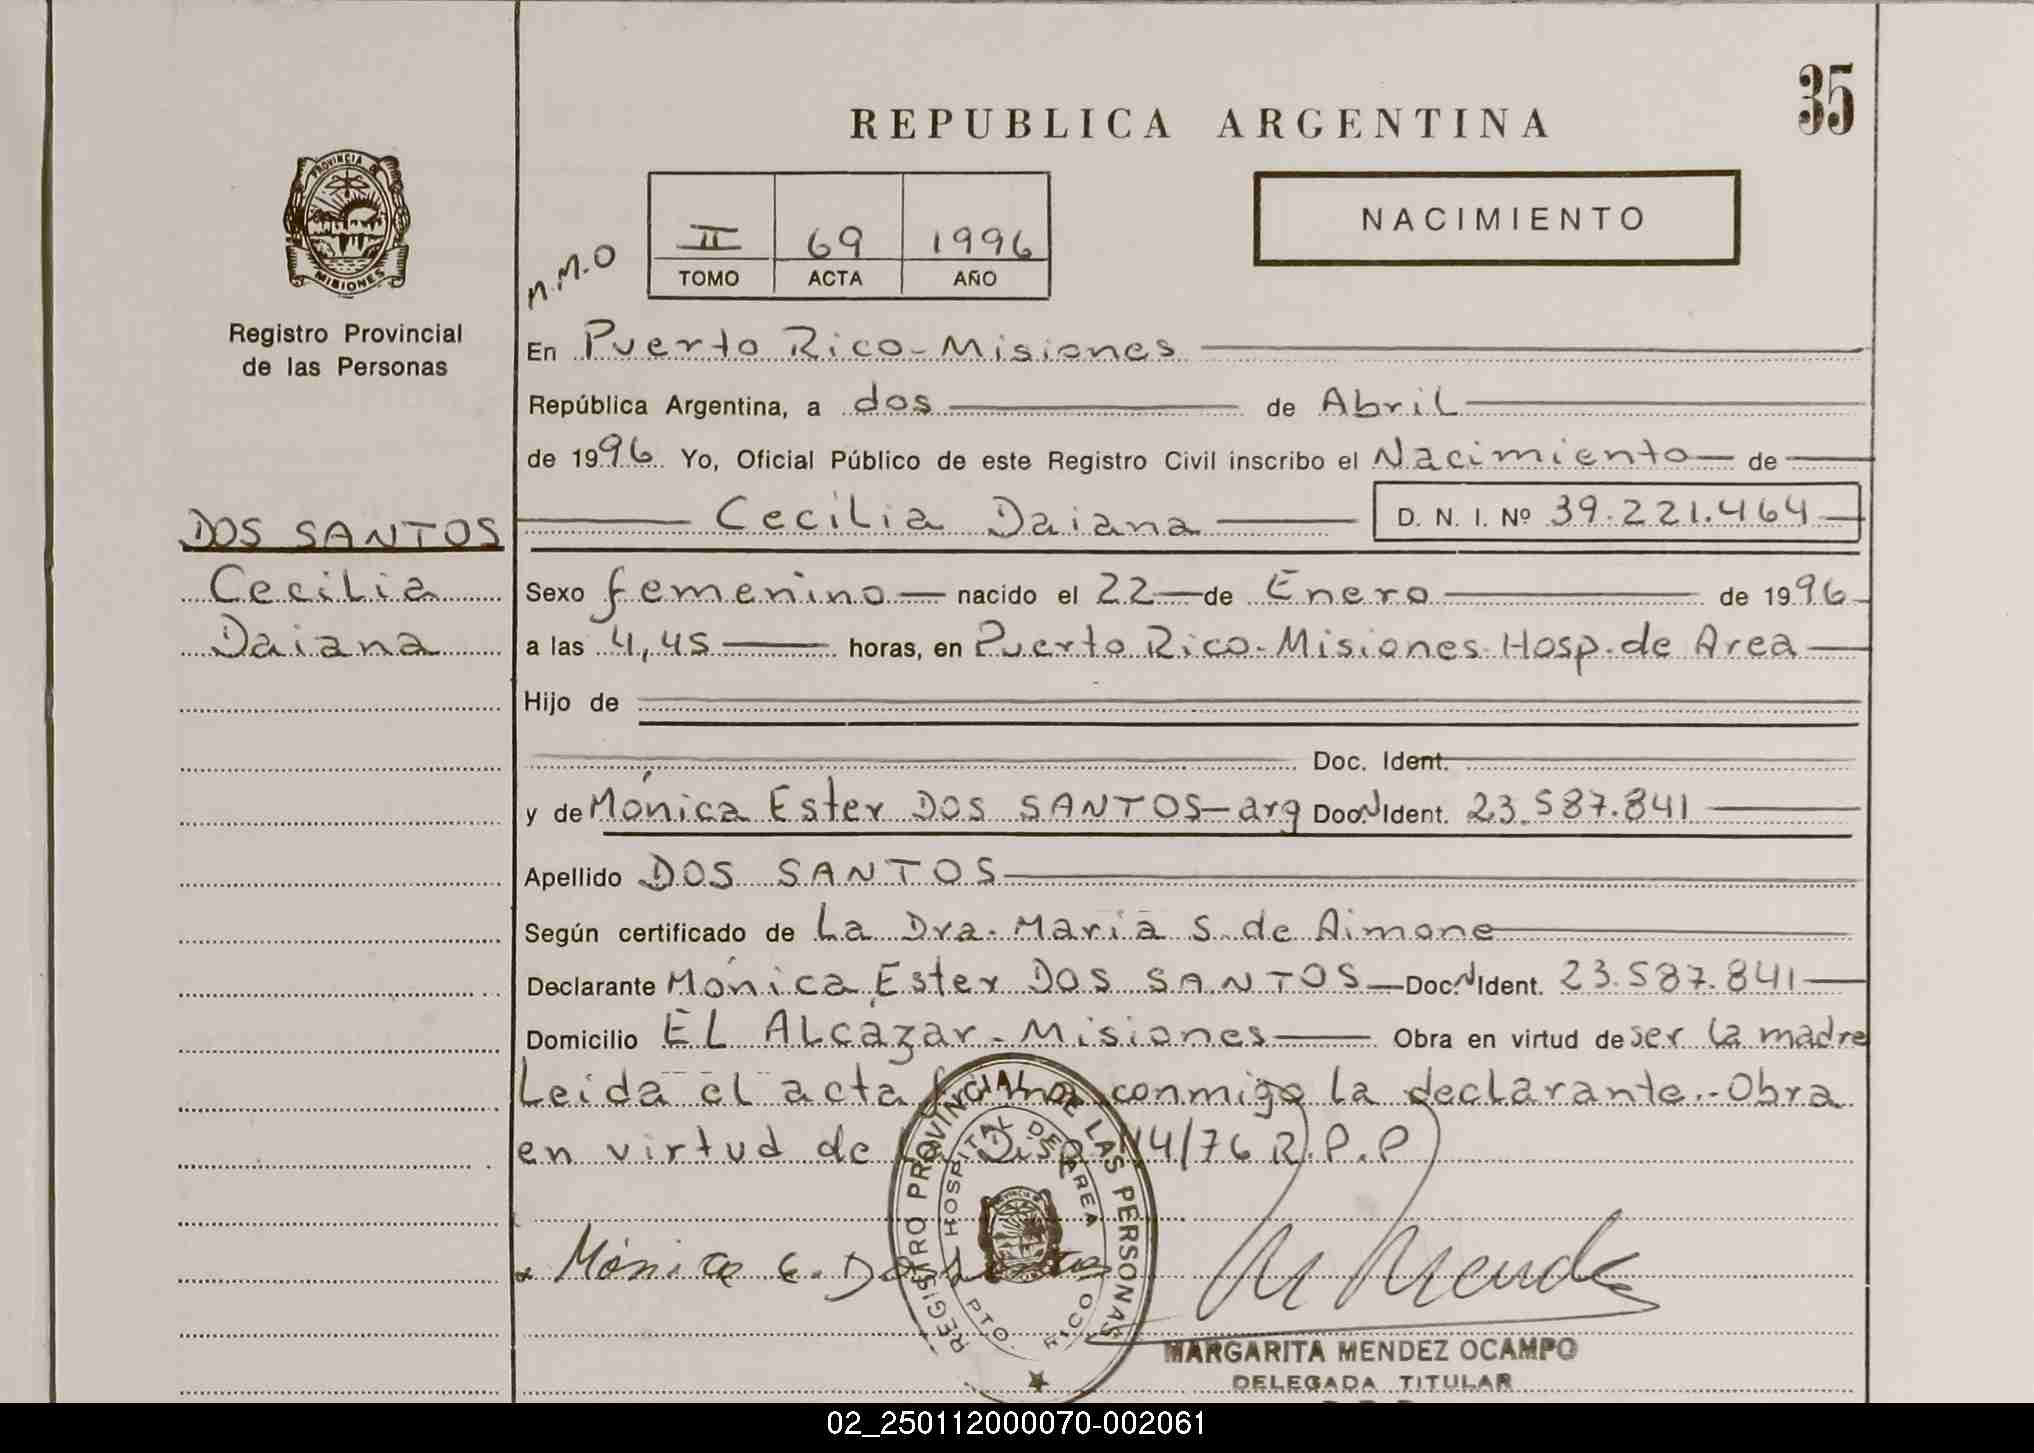 35
REPUBLICA ARGENTINA
PROVINCIA DE
MISIONES
Registro Provincial
de las Personas
NACIMIENTO
II 69 1996
TOMO ACTA AÑO
N.M.O
En Puerto Rico - Misiones
República Argentina, a dos de Abril
de 1996 Yo, Oficial Público de este Registro Civil inscribo el Nacimiento de
Cecilia Daiana D. N. I. Nº 39.221.464
DOS SANTOS
Cecilia
Daiana
Sexo femenino nacido el 22 de Enero de 1996
a las 4,45 horas, en Puerto Rico - Misiones - Hosp. de Area
Hijo de
Doc. Ident.
y de Mónica Ester DOS SANTOS - arg Doc. N Ident. 23.587.841
Apellido DOS SANTOS
Según certificado de La Dra. María S. de Aimone
Declarante Mónica Ester DOS SANTOS Doc. N Ident. 23.587.841
Domicilio EL ALcázar - Misiones Obra en virtud de ser la madre
Leída el acta firma conmigo la declarante.- Obra
en virtud de la Disp. 14/76 R.P.P
Mónica E. Dos Santos
REGISTRO PROVINCIAL DE LAS PERSONAS
HOSPITAL DE AREA
PTO. RICO
M Mendez
MARGARITA MENDEZ OCAMPO
DELEGADA TITULAR
02_250112000070-002061